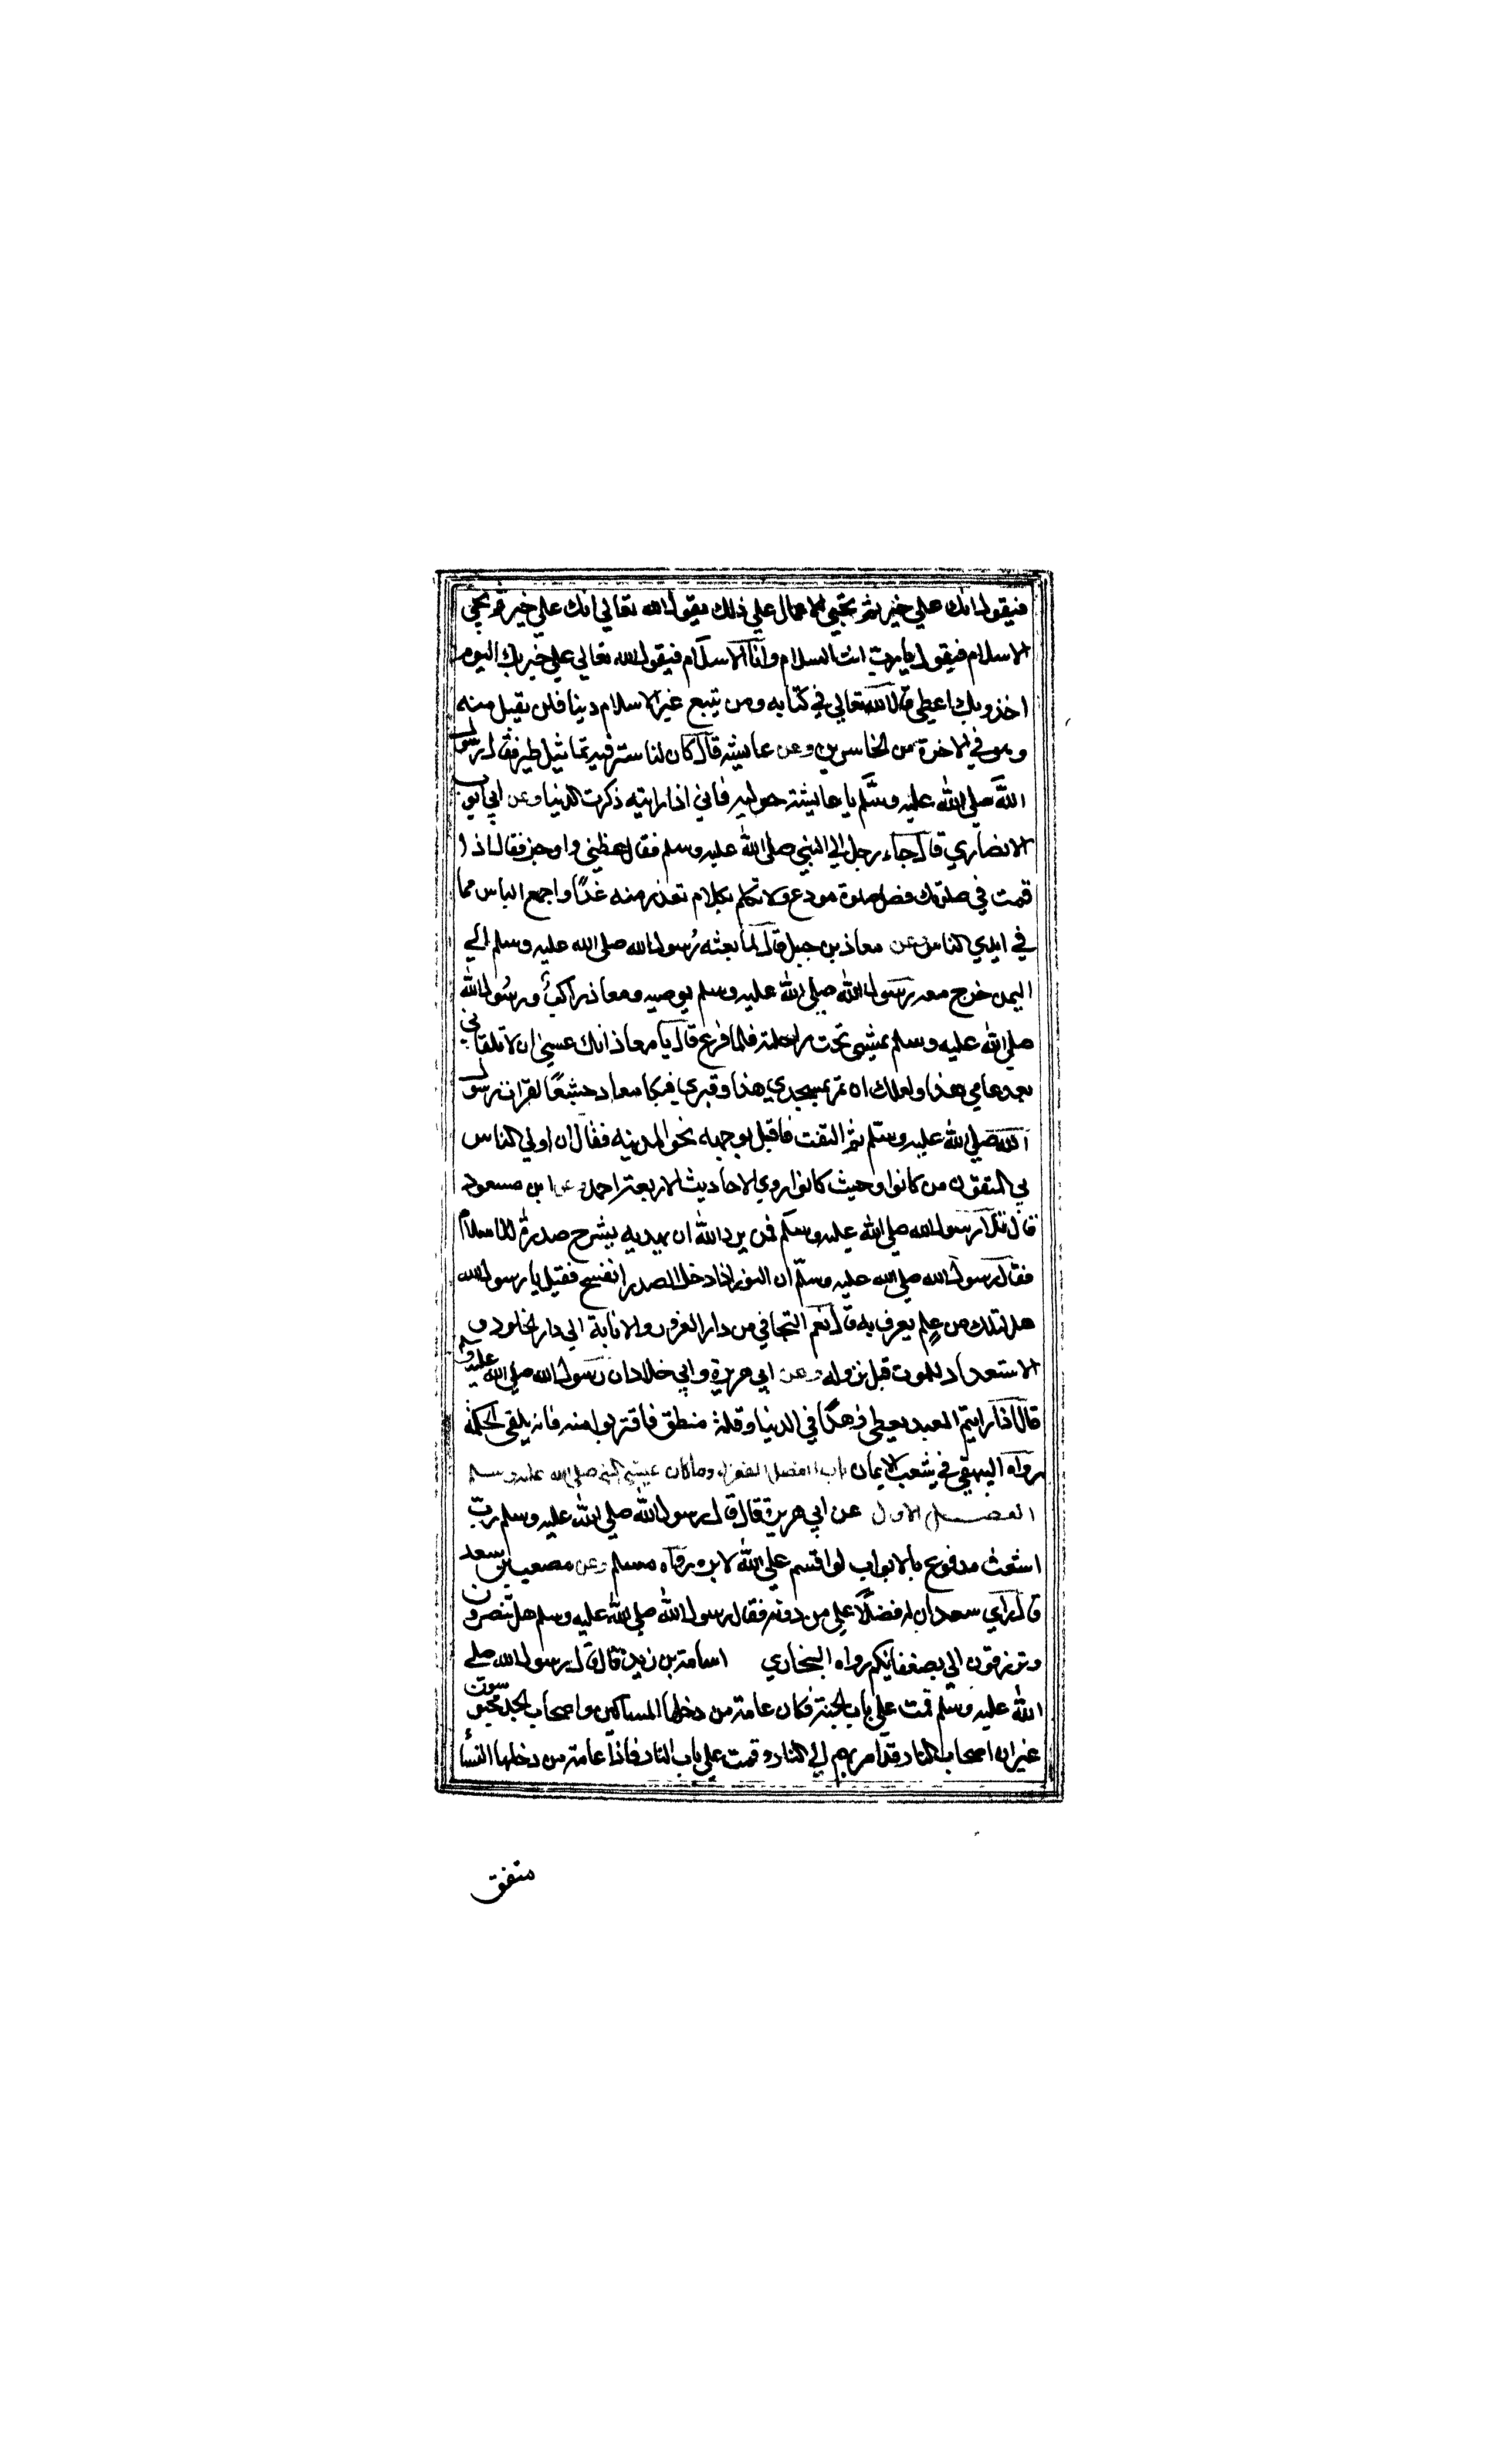 فيقول انك علي خير ثم تجيئ الاعمال علي ذلك يقول الله تعالي انك علي خير ثم يجي
الاسلام فيقول يا رب انت السلام وانا الاسلام فيقول الله تعالي علي خير بك اليوم
اخذ وبك اعطي قال الله تعالي في كتابه ومن يتبع غير الاسلام دينا فلن يقبل منه
وهو في الاخرة من الخاسرين وعن عايشة قال كان لنا ستر فيه تماثيل طير فقال رسول
الله صلي الله عليه وسلم يا عايشة حوليه فاني اذا رايته ذكرت الدنيا وعن ابي ايوب
الانصاري قال جاء رجل الي النبي صلي الله عليه وسلم فقال عظني واوجز فقال اذا
قمت في صلوتك فصل صلوة مودع ولا تكلم بكلام تعذر منه غدًا واجمع الياس مما
في ايدي الناس وعن معاذ بن جبل قال لما بعثه رسول الله صلي الله عليه وسلم الي
اليمن خرج معه رسول الله صلي الله عليه وسلم يوصيه ومعاذ راكب ورسول الله
صلي الله عليه وسلم يمشي تحت راحلته فلما فرغ قال يا معاذ انك عسي ان لا تلقاني
بعد عامي هذا ولعلك ان تمر بمسجدي هذا وقبري فبكا معاد جشعًا لفراق رسول
الله صلي الله عليه وسلم ثم التفت فاقبل بوجهه نحو المدينه فقال ان اولي الناس
بي المتقون من كانوا وحيث كانوا روي الاحاديث الاربعة احمد وعن ابن مسعود
قال تلا رسول الله صلي الله عليه وسلم فمن يرد الله ان يهديه يشرح صدره للاسلام
فقال رسول الله صلي الله عليه وسلم ان النور اذا دخل الصدر انفسح فقيل يا رسول الله
هل لتلك من علم يعرف به قال نعم التجافي من دار الغرور والانابة الي دار الخلود و
الاستعداد للموت قبل نزوله وعن ابي هريرة وابي خلاد ان رسول الله صلي الله عليه وسلم
قال اذا رايتم العبد يعطي زهدًا في الدنيا وقلة منطق فاقتربوا منه فانه يلقي الحكمة
رواه البيهقي في شعب الايمان باب فضل الفقراء وما كان عيش النبي صلي الله عليه وسلم
الفصل الاول عن ابي هريرة قال قال رسول الله صلي الله عليه وسلم رب
اشعث مدفوع بالابواب لو اقسم علي الله لابره رواه مسلم وعن مصعب بن سعد
قال راي سعد ان له فضلًا علي من دونه فقال رسول الله صلي الله عليه وسلم هل تنصرون
وترزقون الي بضعفائكم رواه البخاري اسامة بن زيد قال قال رسول الله صلي
الله عليه وسلم قمت علي باب الجنة فكان عامة من دخلها المساكين واصحاب الجد محبوسون
غير ان اصحاب النار قد امر بهم الي النار وقمت علي باب النار فاذا عامة من دخلها النسأ
متفق